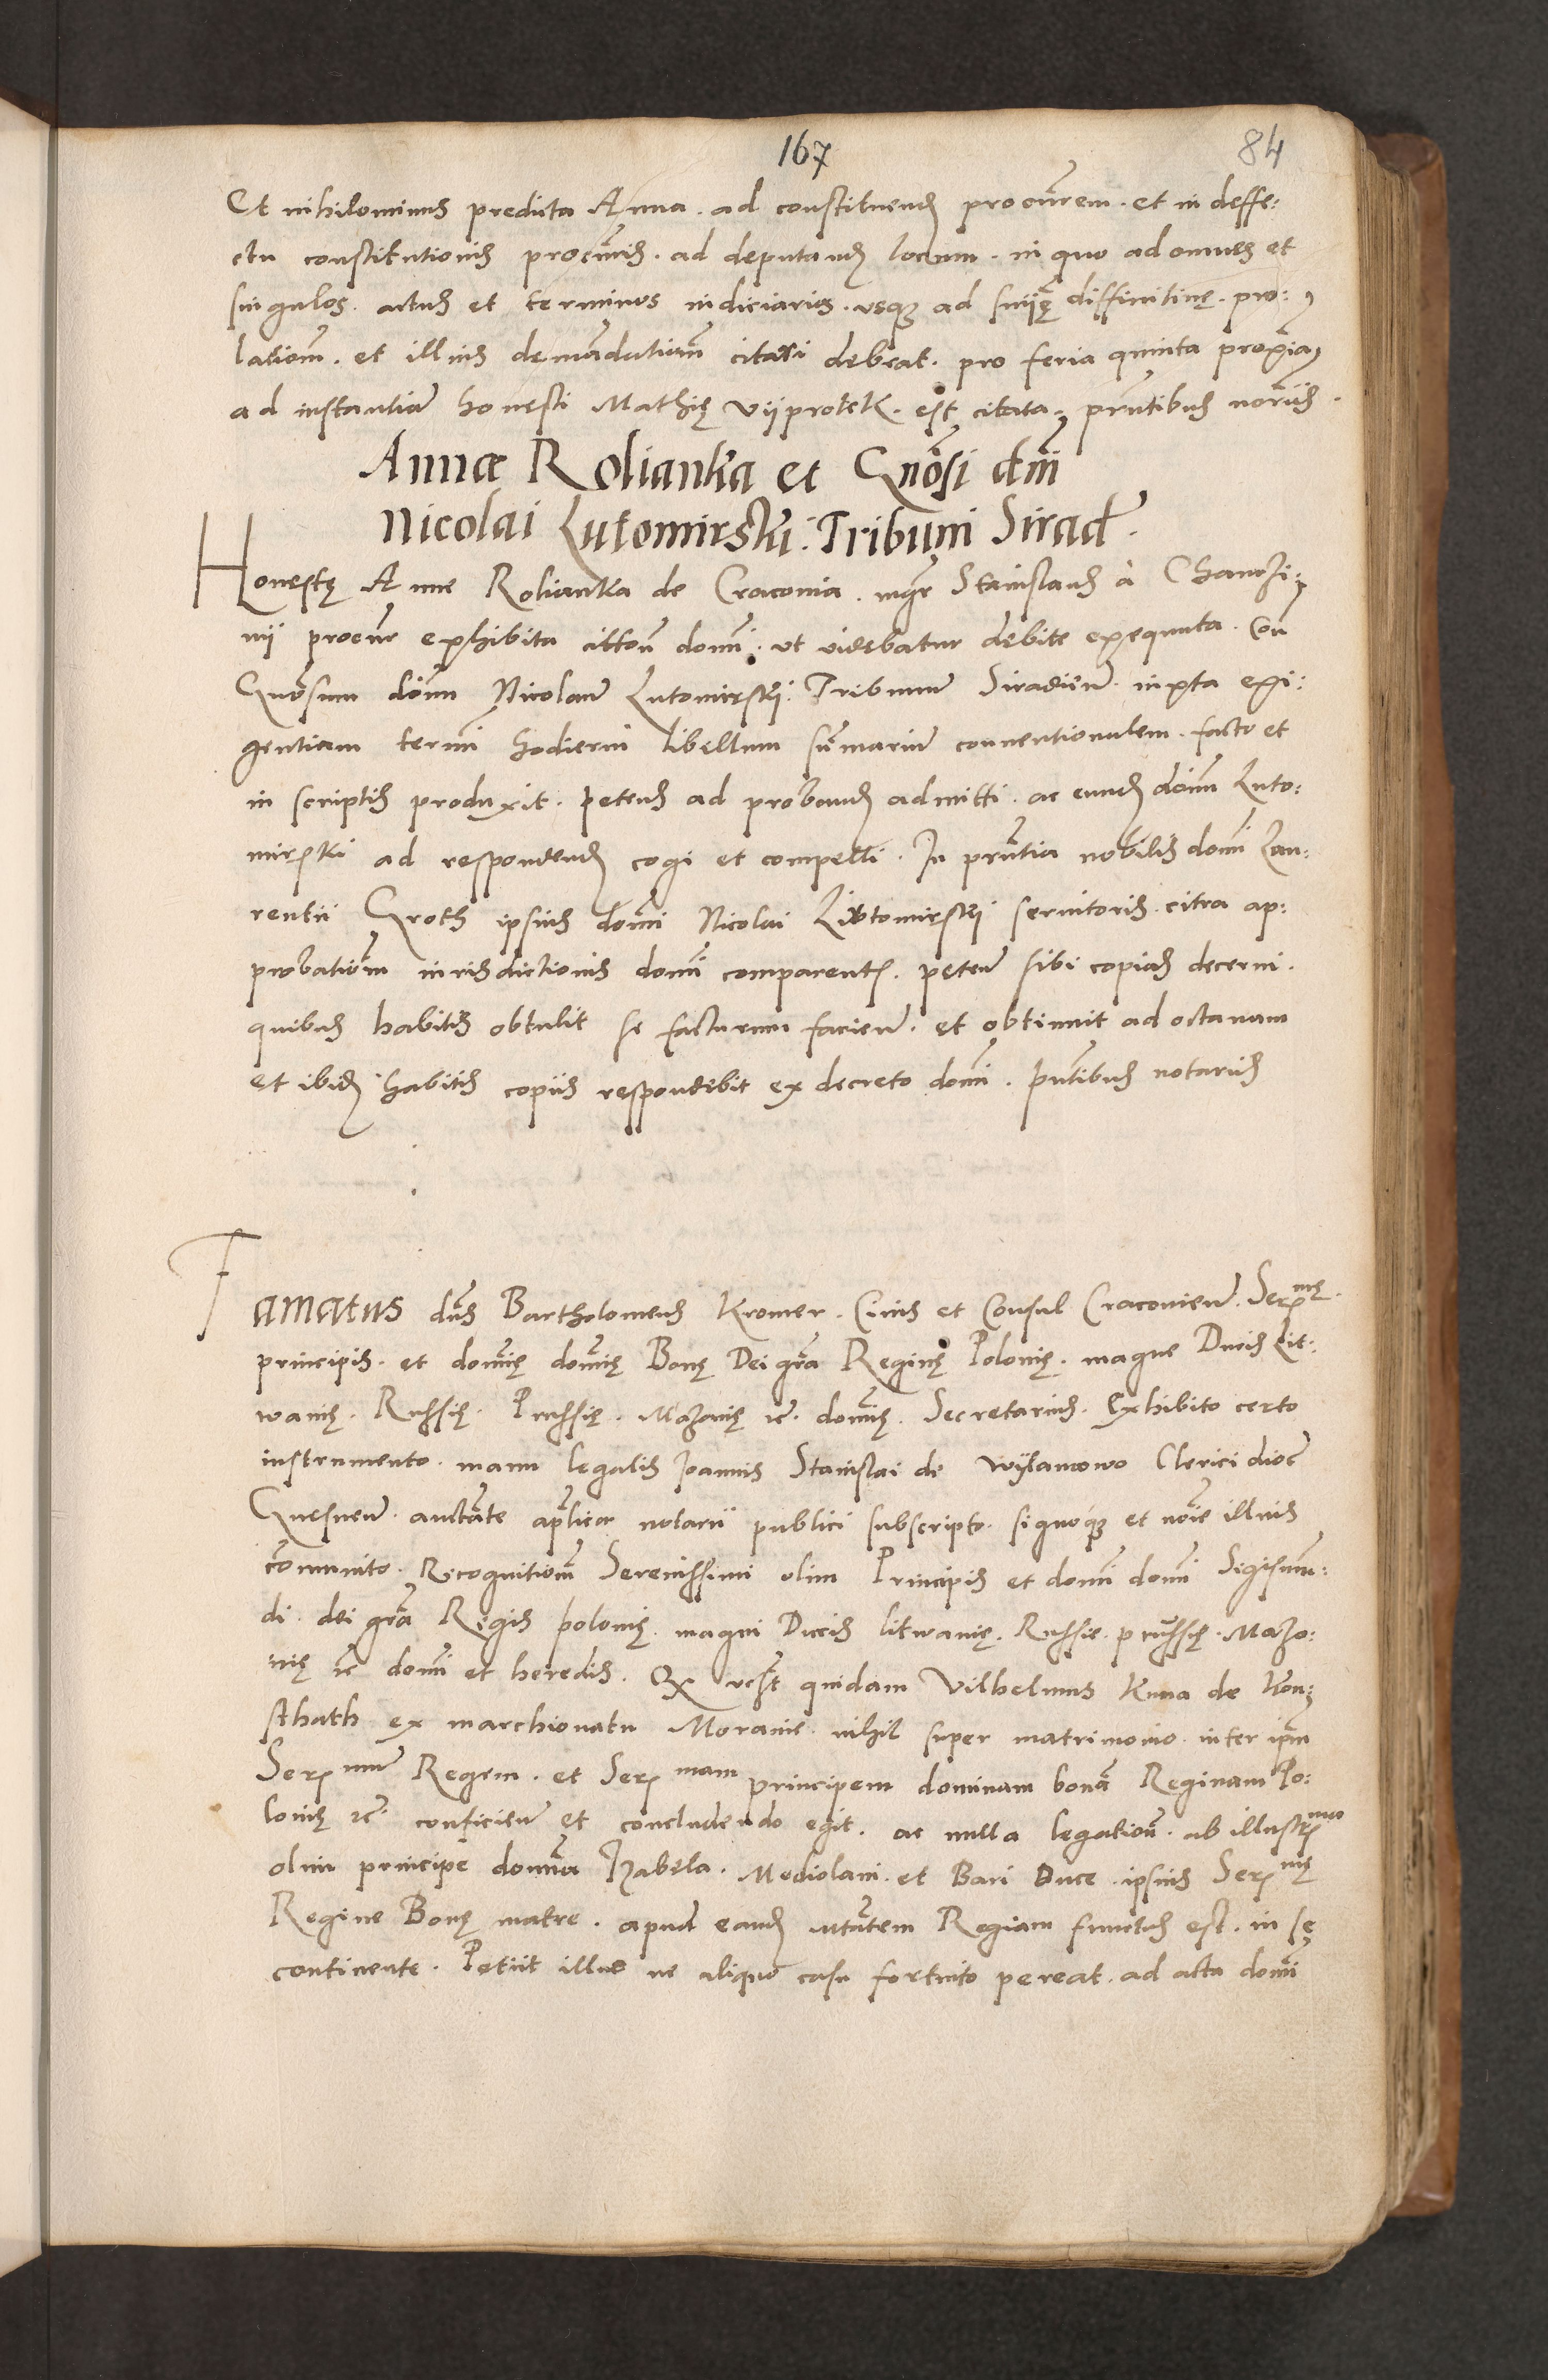 167
84
Et nihilominus predicta Anna. ad constituend procurem. et in deffe:
ctu constitutionis procuris. ad deputand locum. in quo ad omnes et
singulos. actus et terminos iudiciarios. usqz ad sniję diffinitiuę. pro:
lationm. et illius demadationm citari debeat. pro feria quinta proxia,
ad instantiam honesti Mathię Vijprotek. est citata, prntibus noriis.
Annæ Rolianka et Gnōsi dnī
Nicolai Lutomirski. Tribuni Sirad.
Honestę Anne Rolianka de Craconia. mgr Stanislaus à Chanczi:
nij procur exhibita cittōn domī. ut uidebatur debite exequuta. Con
Gnōsum domn Nicolaum Lutomirski. Tribunum Siradien. iuxta exi:
gentiam termī hodierni libellum summarium conuentionalem. facto et
in scriptis produxit. Petens ad proband admitti. ac eund domn Luto:
mirski ad respondend cogi et compelli. In prntia nobilis domī Lau:
rentii Groth ipsius domī Nicolai Lutomirski seruitoris. citra ap:
probationm iurisdictionis domī comparents. peten sibi copias decerni.
quibus habitis obtulit se facturum facien. et obtinuit ad octauam
et ibid habitis copiis respondebit ex decreto domī. pntibus notariis
Famatus dns Bartholomeus Kromer. Ciuis et Consul Cracouien. Sermę.
principis. et domnę domnę Bonę Dei gra Reginę Polonię. magne Ducis Lit:
wanię. Russię. Prussię. Mazouię etc. domnę. Secretarius. Exhibito certo
instrumento. manu legalis Joannis Stanislai de Wylamowo Clerici dioc
Gnesnen. auctate aplica notarii publici subscripto. signoqz et nōie illius
comunito. Recognitionm Serenissimi olim Principis et domī domī Sigismun:
di. dei gra Regis polonię. magni Ducis litwanię. Russie. prussię. Mazo:
uię etc domī et heredis. Qz quidam Vilhelmus Kuna de Kun:
sthath ex marchionatu Morauie. nihil super matrimonio. inter ipm
Sermum Regem. et Sermam principem dominam bonā Reginam Po:
lonię etc. conficien et concludendo egit. ac nulla legationē. ab illustrmo
olim principe domna Izabela. Mediolani. et Bari Duce. ipsius Sermę
Regine Bonę matre. apud eand mtatem Regiam functus est. in sę
continente. Petiit illud ne aliquo casu fortuito pereat. ad acta domī